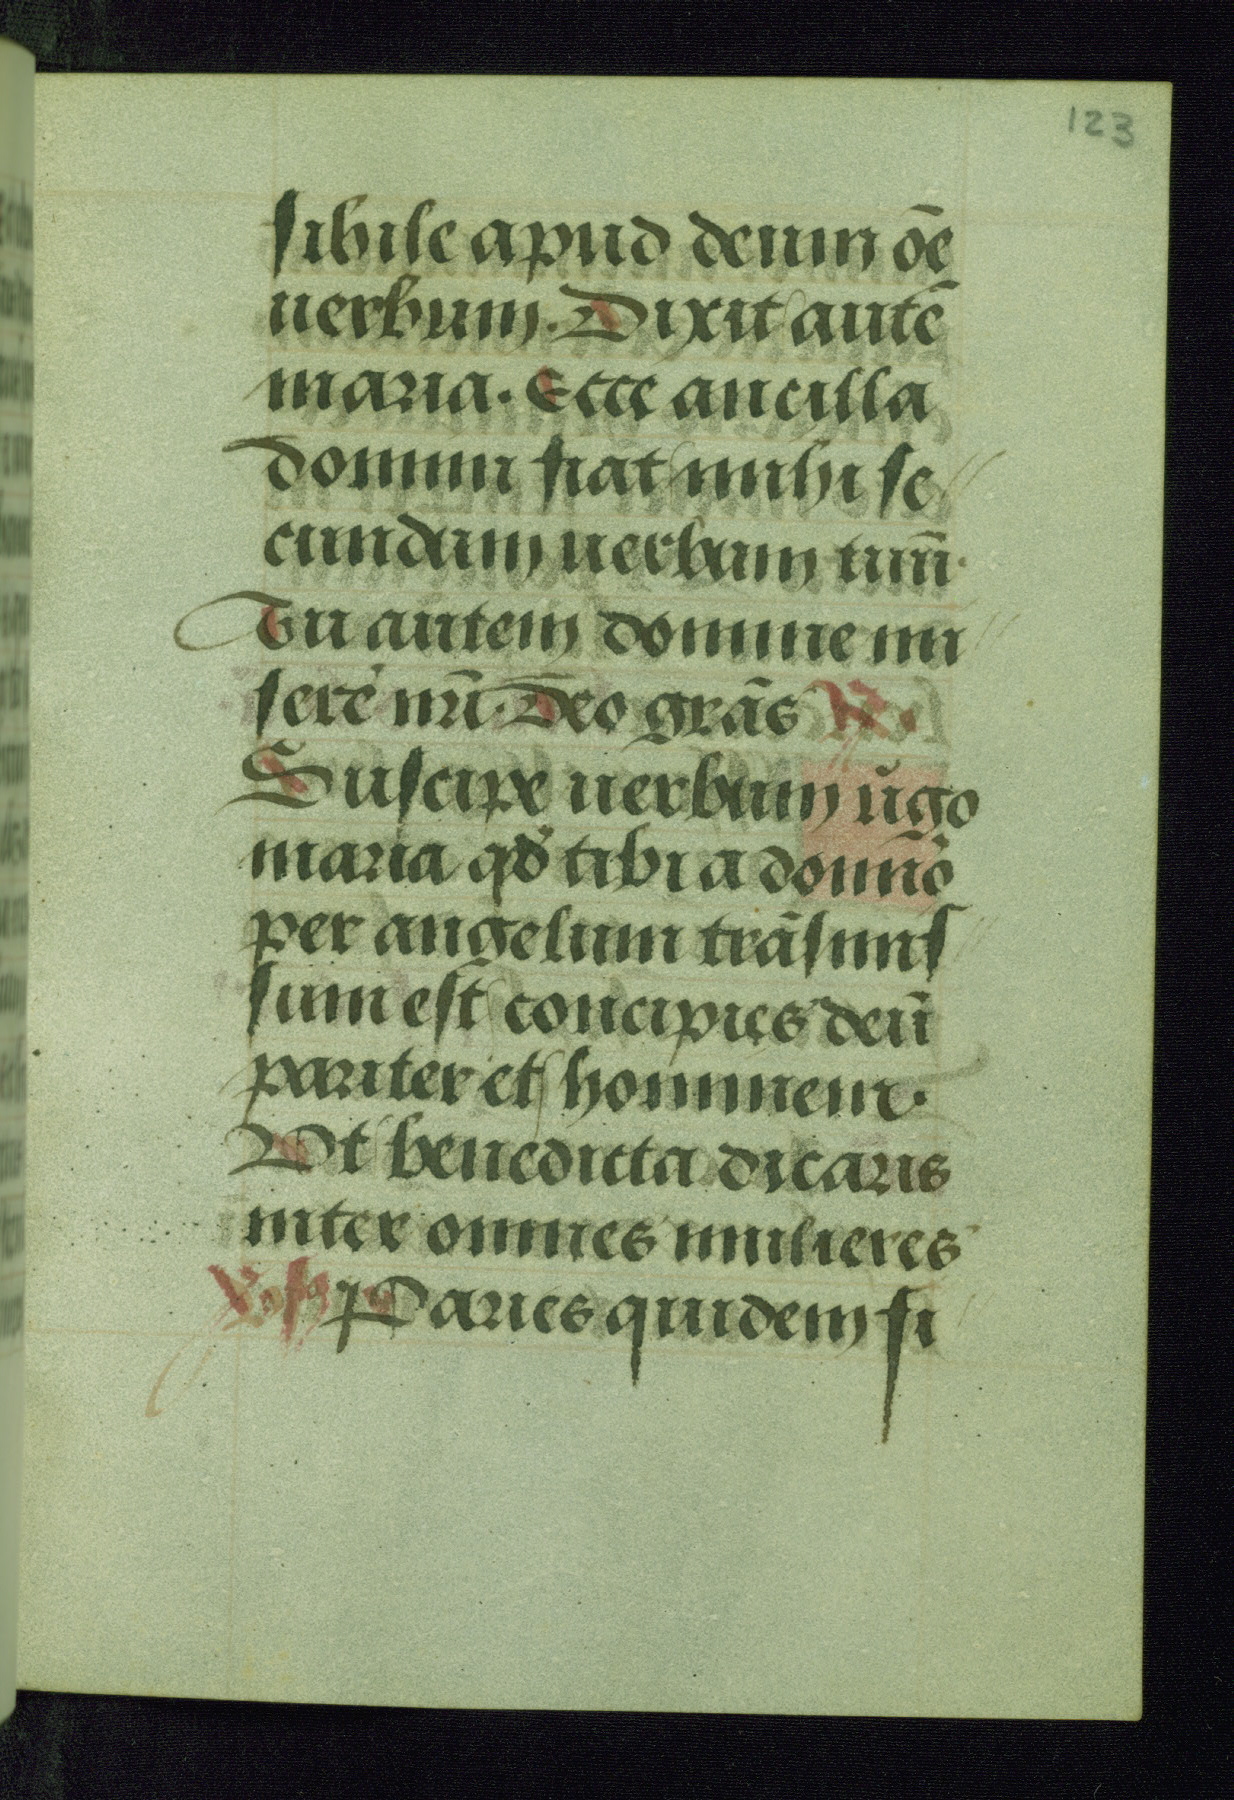 123
sibile apud deum om̄e
uerbum. Dixit autē
maria. Ecce ancilla
domini fiat mihi se
cundum uerbum tuū.
Tu autem domine mi
sere nr̄i. Deo grās R̸.
Suscipe uerbum ůgo
maria qđ tibi a domīo
per angelum trāsmis
sum est concipies deū
pariter et hominem.
Ut benedicta dicaris
inter omnes mulieres
Paries quidem fi